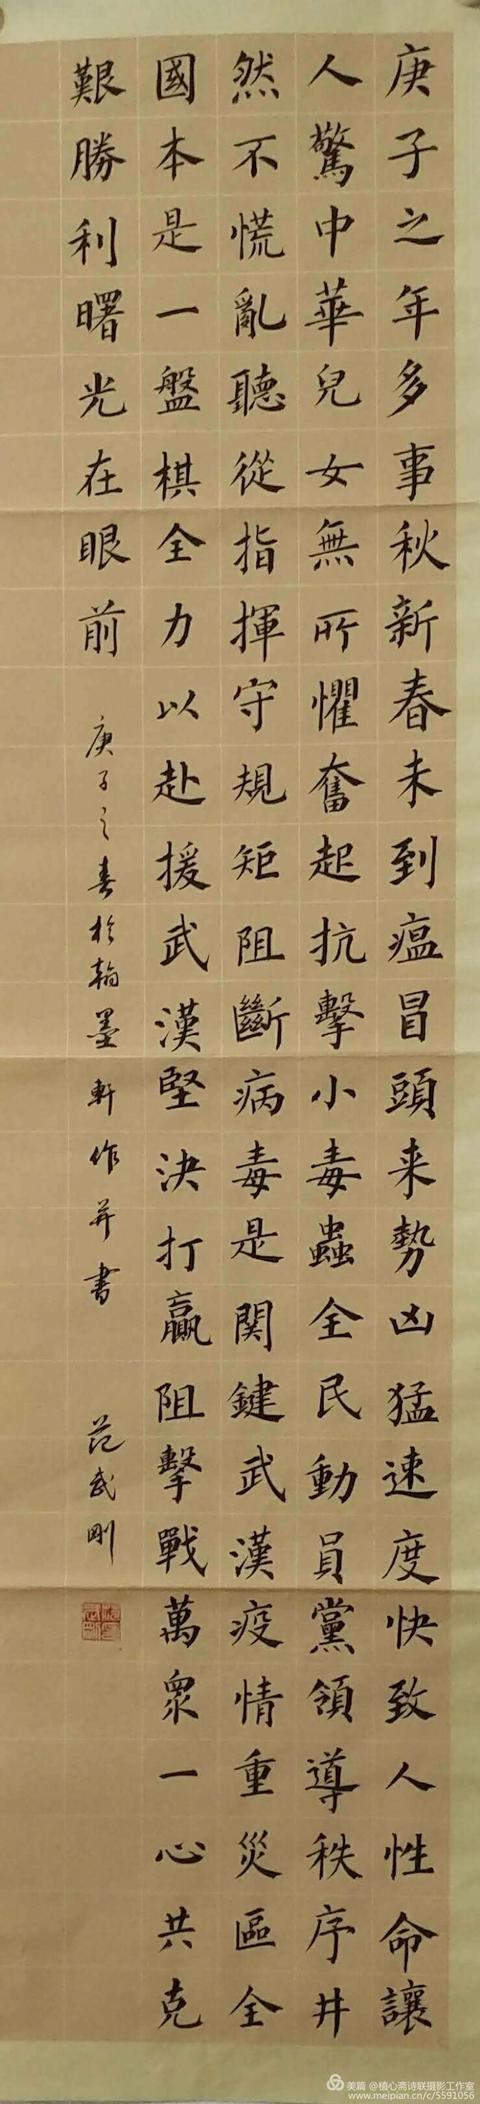 庚子之年多事秋新春未到瘟冒頭来勢凶猛速度快致人性命讓
人驚中華兒女無所懼奮起抗擊小毒蟲全民動員黨領導秩序井
然不慌亂聽從指揮守規矩阻斷病毒是関鍵武漢疫情重災區全
國本是一盤棋全力以赴援武漢堅決打贏阻擊戰萬眾一心共克
艱勝利曙光在眼前
庚子之春於翰墨軒作并書
范武剛
美篇 @植心斋诗联摄影工作室
www.meipian.cn/c/5591056